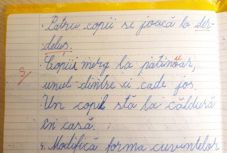 Patru copii se joacă la der-
deluș.
Copiii merg la patinoar,
unul dintre ei cade jos.
Un copil stă la căldură
în casă.
Modifică forma cuvintelor